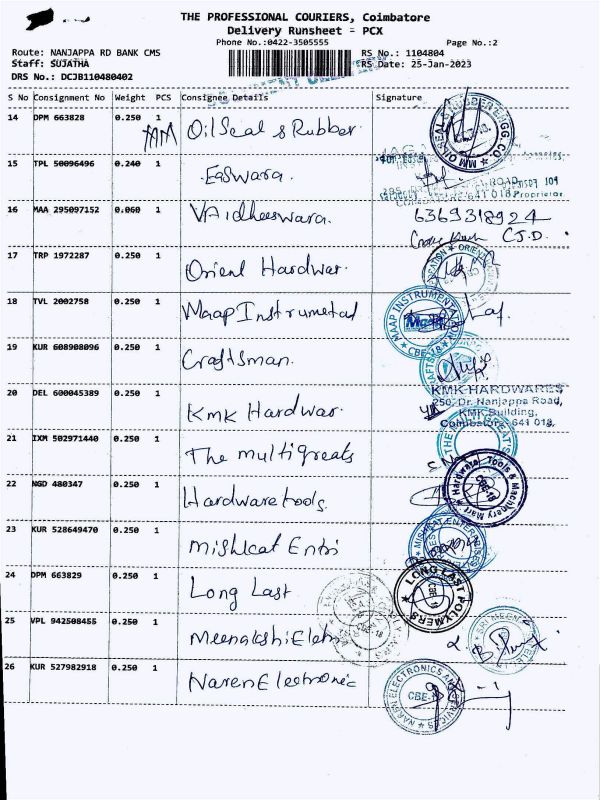 THE PROFESSIONAL COURIERS, Coimbatore
Delivery Runsheet = PCX
Phone No.:0422-3505555
Page No.:2
Route: NANJAPPA RD BANK CMS
RS No.: 1104804
Staff: SUJATHA
RS Date: 25-Jan-2023
DRS No.: DCJB110480402
S No Consignment No Weight PCS Consignee Details Signature
14 DPM 663828 0.250 1 Oil Seal & Rubber
MM OILSEAL & RUBBER AGG. CO
15 TPL 50096496 0.240 1 Easwara.
ROAD,
641 018. Proprietor
16 MAA 295097152 0.060 1 VAidheeswara. 6369318924
C.J.D.
17 TRP 1972287 0.250 1 Orient Hardwar.
18 TVL 2002758 0.250 1 Maap Instrumetad
MAAP INSTRUMENTATION
CBE-18
19 KUR 608908096 0.250 1 Craftsman.
20 DEL 600045389 0.250 1 KMK Hardwar.
KMK HARDWARES
250, Dr. Nanjappa Road,
KMK Building,
Coimbatore - 641 018.
21 IXM 502971440 0.250 1 The multigreats
22 NGD 480347 0.250 1 Hardware tools.
Hardware Tools & Machinery Mart
CBE-18
23 KUR 528649470 0.250 1 Mishkat Entri
MISHKAT ENTERPRISES
24 DPM 663829 0.250 1 Long Last
LONG LAST POLYMERS
CBE-18
25 VPL 942508455 0.250 1 Meenakshi Elets
SRI MEENA
26 KUR 527982918 0.250 1 Naren Electronic
NAREN ELECTRONICS AND SERVICES
CBE-18